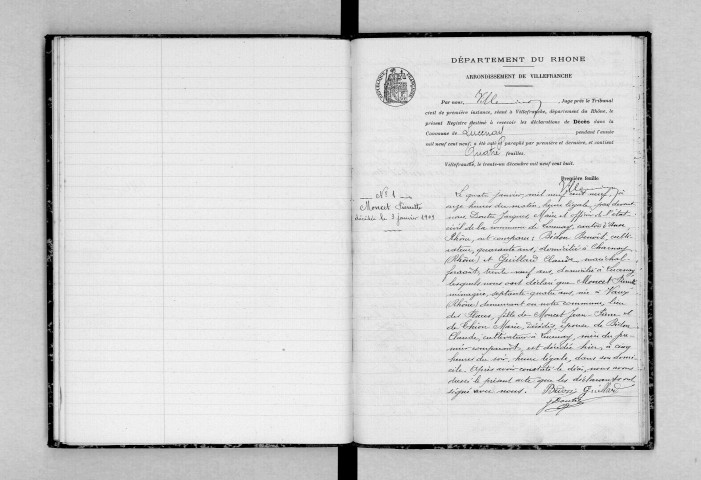 DÉPARTEMENT DU RHONE
ARRONDISSEMENT DE VILLEFRANCHE
Par nous, Juge près le Tribunal
civil de première instance, séant à Villefranche, département du Rhône, le
présent Registre destiné à recevoir les déclarations de Décès dans la
Commune de Lucenay pendant l'année
mil neuf cent neuf, a été coté et paraphé par première et dernière, et contient
Quatre feuilles.
Villefranche, le trente-un décembre mil neuf cent huit.
Première feuille
N° 1
Moncet Pierrette
décédée le 3 janvier 1909
Le quatre janvier mil neuf cent neuf, à
onze heures du matin, heure légale, par devant
nous Jacques, Maire et officier de l'état
civil de la commune de Lucenay, canton d'Anse
Rhône, ont comparu : Bidon Benoît, culti-
vateur, quarante ans, domicilié à Charnay
(Rhône) et Guillard Claude maréchal-
ferrant, trente neuf ans, domicilié à Lucenay
lesquels nous ont déclaré que Moncet
ménagère, septante quatre ans, née à
(Rhône) demeurant en notre commune, lieu
des Places, fille de Moncet Jean Pierre et
de Thion Marie, décédés, épouse de Bidon
Claude, cultivateur à Lucenay, mère du pre-
mier comparant, est décédée hier, à cinq
heures du soir, heure légale, dans son domi-
cile. Après avoir constaté le décès, nous avons
dressé le présent acte que les déclarants ont
signé avec nous. Guillard